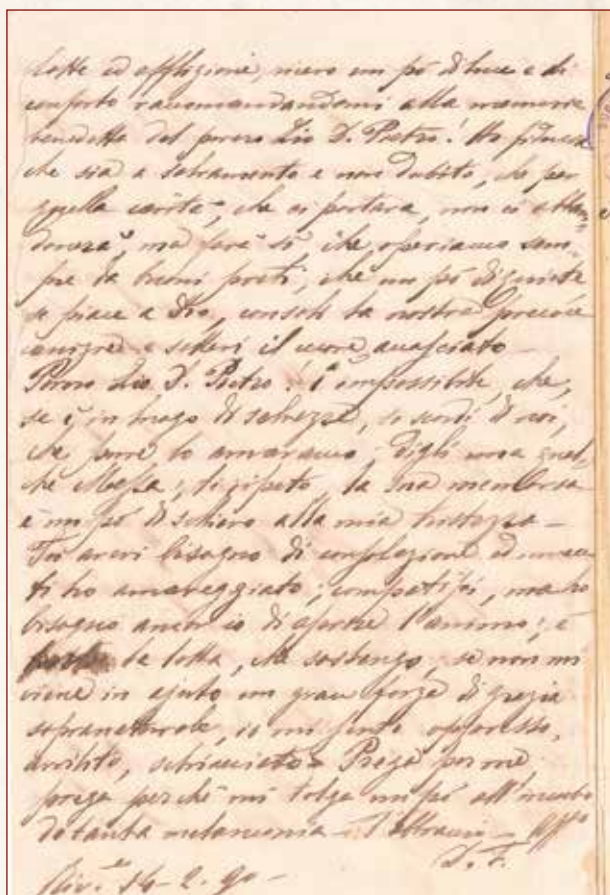 lotte ed afflizione, invero un pò di luce e di
conforto raccomandandomi alla memoria
benedetta del povero Zio D. Pietro! Ho fiducia
che sia a salvamento e non dubito, che per
quella carità, che ci portava, non ci abban-
donerà, ma farà sì che, operiamo sem-
pre da buoni preti, che un pò di quiete
se piace a Dio, consoli la nostra precoce
e il cuore, ambasciato
Povero Zio D. Pietro! È impossibile, che,
se è in luogo di salvezza, si scordi di noi,
che pure lo amavamo. Digli una qual-
che Messa; ti ripeto, la sua memoria
è un pò di schiaro alla mia tristezza –
Tu avevi bisogno di consolazione ed invece
ti ho amareggiato; compatisci, ma ho
bisogno anch'io di aprire l'animo; e
la lotta, che sostengo, se non mi
viene in ajuto un gran forza di grazia
sopranaturale, io mi sento oppresso,
avvilito, schiacciato – Prega per me
prega perchè mi tolga un pò all'incubo
di tanta melanconia – T'abbraccio – Affmo
D. F.
14-2-90 –